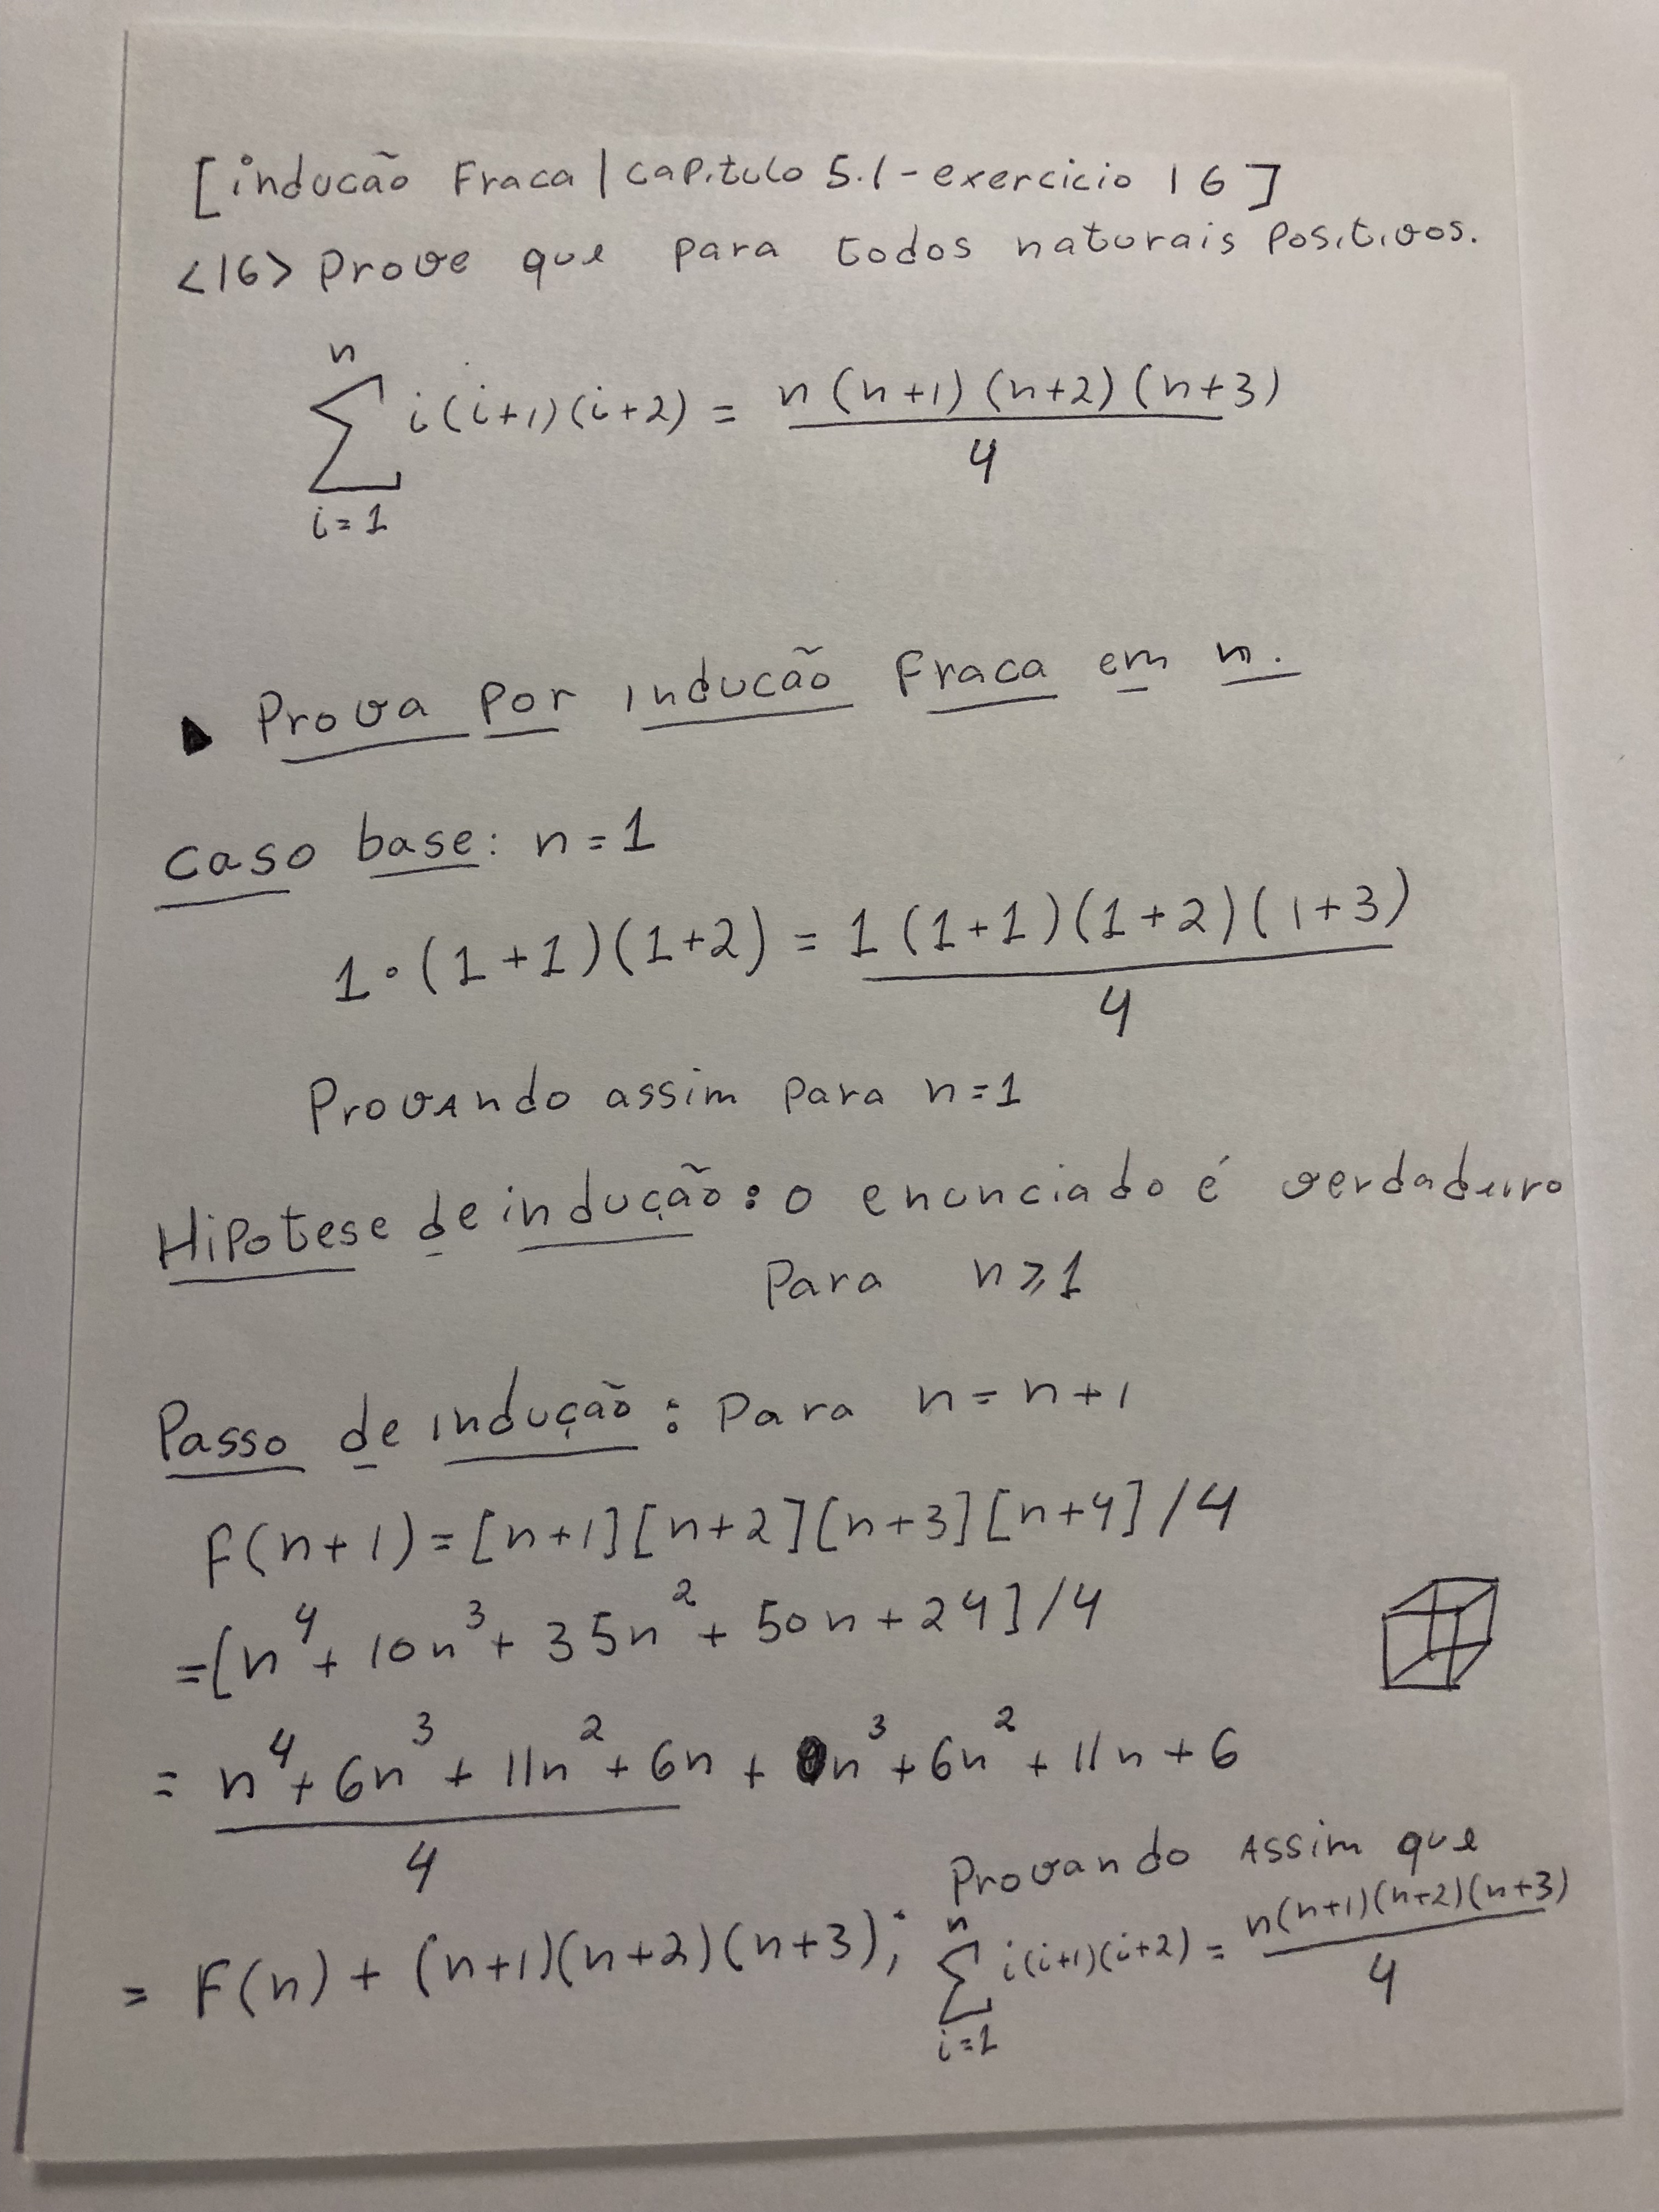 [indução Fraca | capitulo 5.1 - exercicio 16]
<16> Prove que para todos naturais positivos.
n
∑ i(i+1)(i+2) = n(n+1)(n+2)(n+3)
4
i=1
Prova por indução Fraca em n.
caso base: n=1
1·(1+1)(1+2) = 1(1+1)(1+2)(1+3)
4
Provando assim para n=1
Hipotese de indução: o enunciado é verdadeiro
para n≥1
Passo de indução: para n=n+1
F(n+1)=[n+1][n+2][n+3][n+4]/4
=[n⁴+10n³+35n²+50n+24]/4
= n⁴+6n³+11n²+6n + n³+6n²+11n+6
4
Provando assim que
= F(n)+(n+1)(n+2)(n+3); n
∑ i(i+1)(i+2) = n(n+1)(n+2)(n+3)
4
i=1